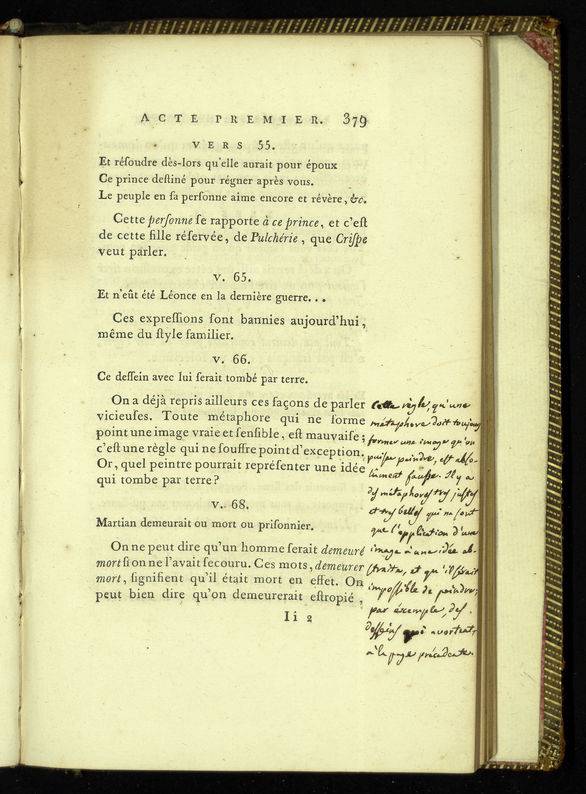 ACTE PREMIER. 379
VERS 55.
Et réſoudre dès-lors qu'elle aurait pour époux
Ce prince deſtiné pour régner après vous.
Le peuple en ſa perſonne aime encore et révère, &c.
Cette perſonne ſe rapporte à ce prince, et c'eſt
de cette fille réſervée, de Pulchérie, que Criſpe
veut parler.
V. 65.
Et n'eût été Léonce en la dernière guerre...
Ces expreſſions ſont bannies aujourd'hui,
même du ſtyle familier.
V. 66.
Ce deſſein avec lui ſerait tombé par terre.
On a déjà repris ailleurs ces façons de parler
vicieuſes. Toute métaphore qui ne forme
point une image vraie et ſenſible, eſt mauvaiſe;
c'eſt une règle qui ne ſouffre point d'exception.
Or, quel peintre pourrait repréſenter une idée
qui tombe par terre?
V. 68.
Martian demeurait ou mort ou priſonnier.
On ne peut dire qu'un homme ſerait demeuré
mort ſi on ne l'avait ſecouru. Ces mots, demeurer
mort, ſignifient qu'il était mort en effet. On
peut bien dire qu'on demeurerait eſtropié,
Ii 2
Cette règle, qu'une
métaphore doit toujours
former une image qu'on
puiſse peindre, eſt abſo-
lument fauſse. Il y a
des métaphores très juſtes
et très belles qui ne ſont
que l'application d'une
image à une idée ab-
ſtraite, et qu'il ſerait
impoſſible de peindre;
par éxemple, des
deſſeins qui avortent,
à la page précédente.